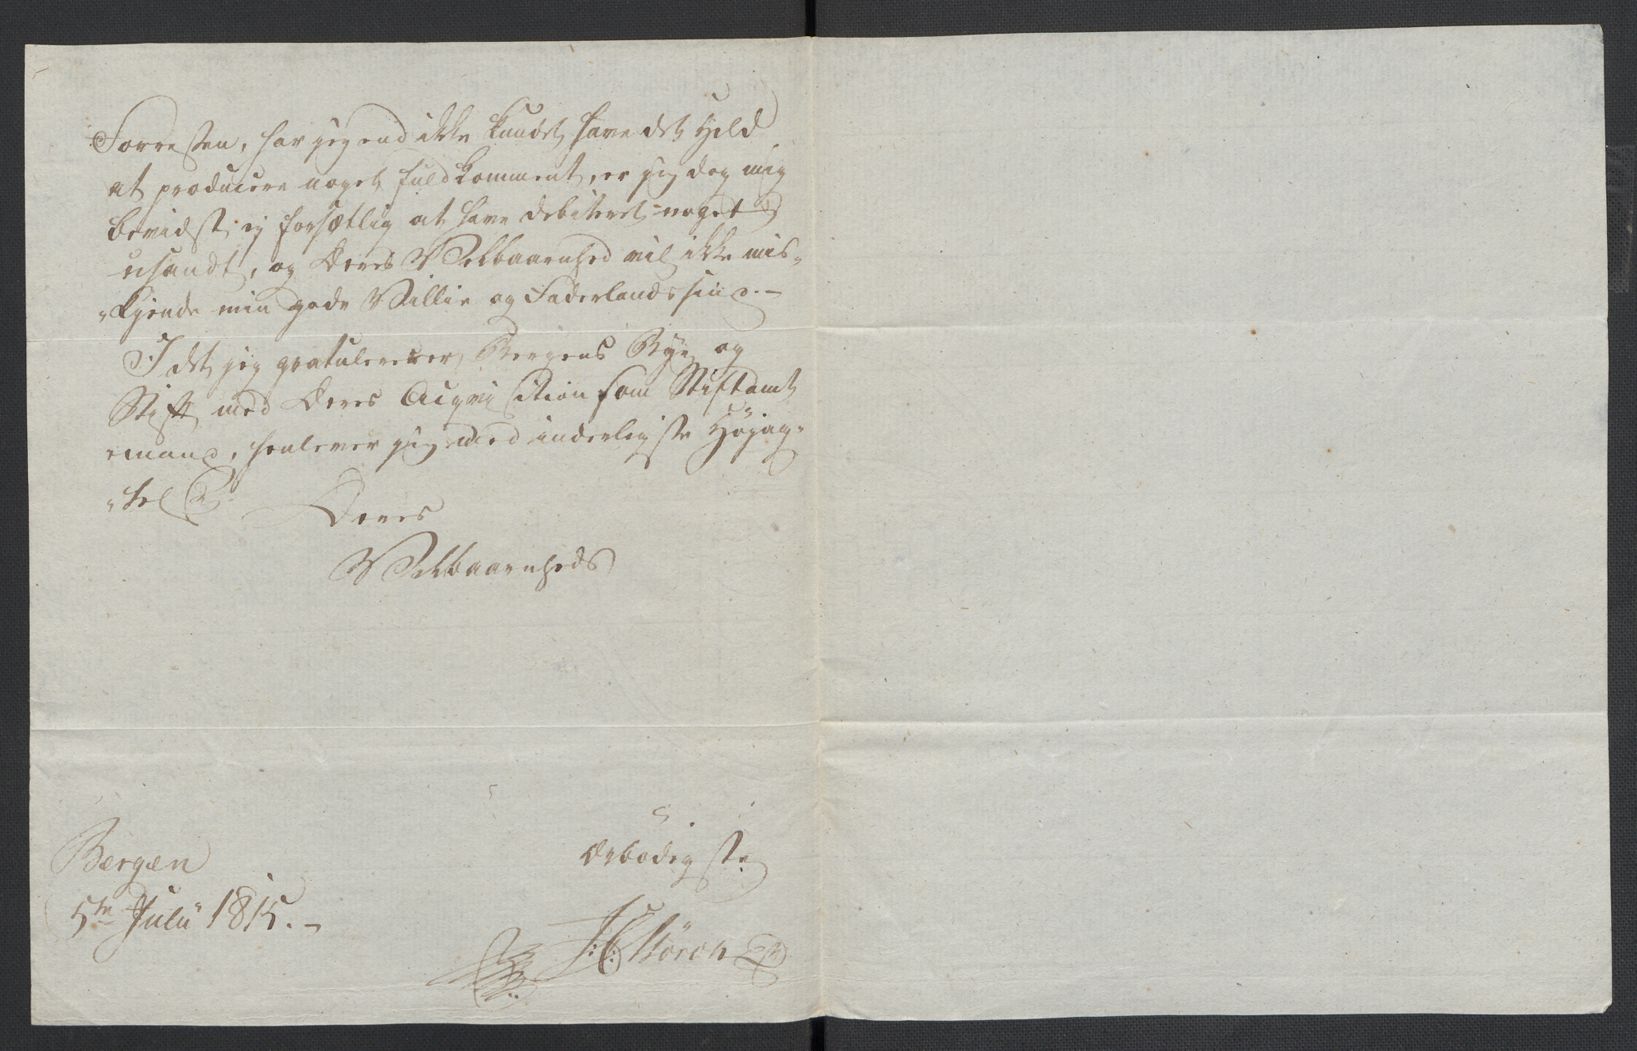 Forresten, har jeg end ikke kundet have det Held
at producere noget fuldkomment, er jeg dog mig
bevidst, ej forsætlig at have debiteret noget
usandt, og Deres Velbaarenhed vil ikke mis„
„kjende min gode Villie og Faderlandssind.–
I det jeg gratulerer Bergens Bye og
Stift med Deres Acqvisition som Stiftamt
emand, henlever jeg med inderligste Højag„
„tel
Deres
Velbaarenheds
Bergen
5te Julii 1815.–
ærbødigste